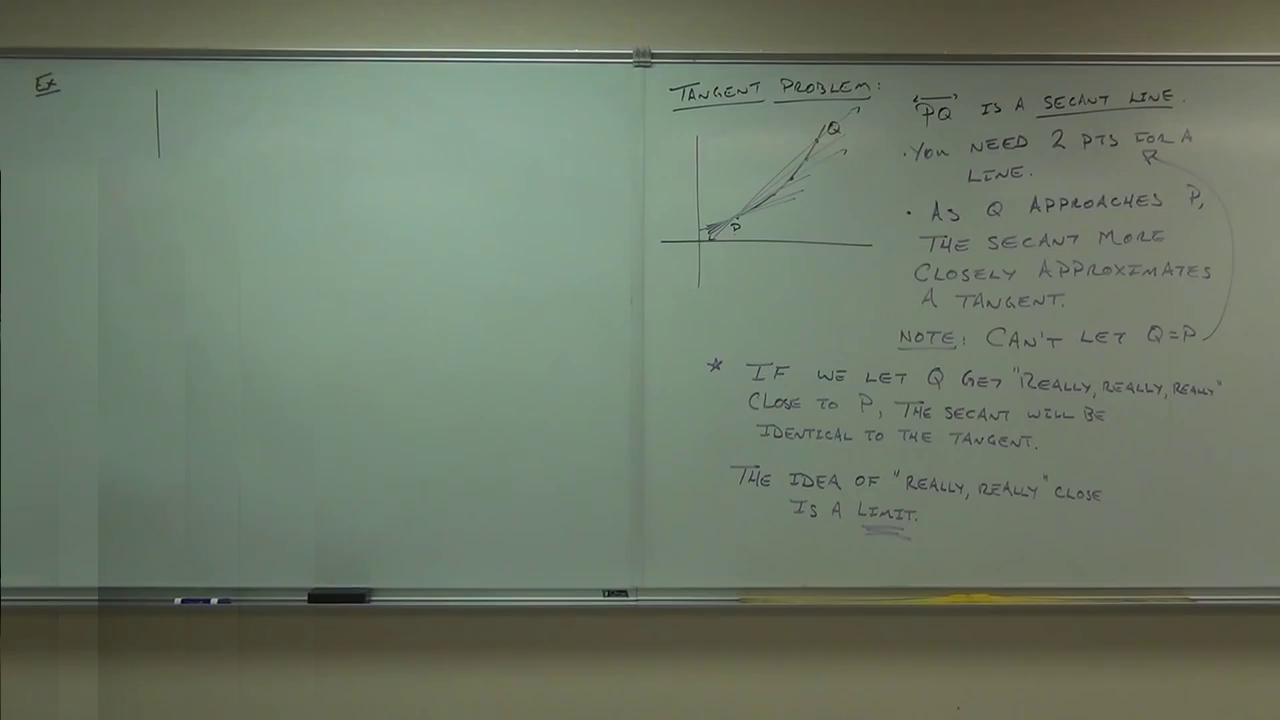 Ex
TANGENT PROBLEM:
Q
P
PQ IS A SECANT LINE.
• YOU NEED 2 PTS FOR A
LINE.
• AS Q APPROACHES P,
THE SECANT MORE
CLOSELY APPROXIMATES
A TANGENT.
NOTE: CAN'T LET Q=P
* IF WE LET Q GET "REALLY, REALLY, REALLY"
CLOSE TO P, THE SECANT WILL BE
IDENTICAL TO THE TANGENT.
THE IDEA OF "REALLY, REALLY" CLOSE
IS A LIMIT.